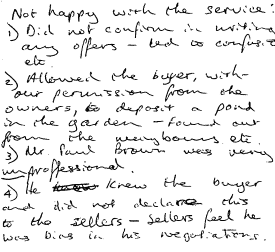 Not happy with the service:
1) Did not confirm in writing
any offers - led to confusion
etc.
2) Allowed the buyer, with-
out permission from the
owners, to deposit a pond
in the garden - found out
from the neighbours etc.
3) Mr. Paul Brown was very
unproffessional.
4) He knew the buyer
and did not declare this
to the sellers - sellers feel he
was bias in his negotiations.